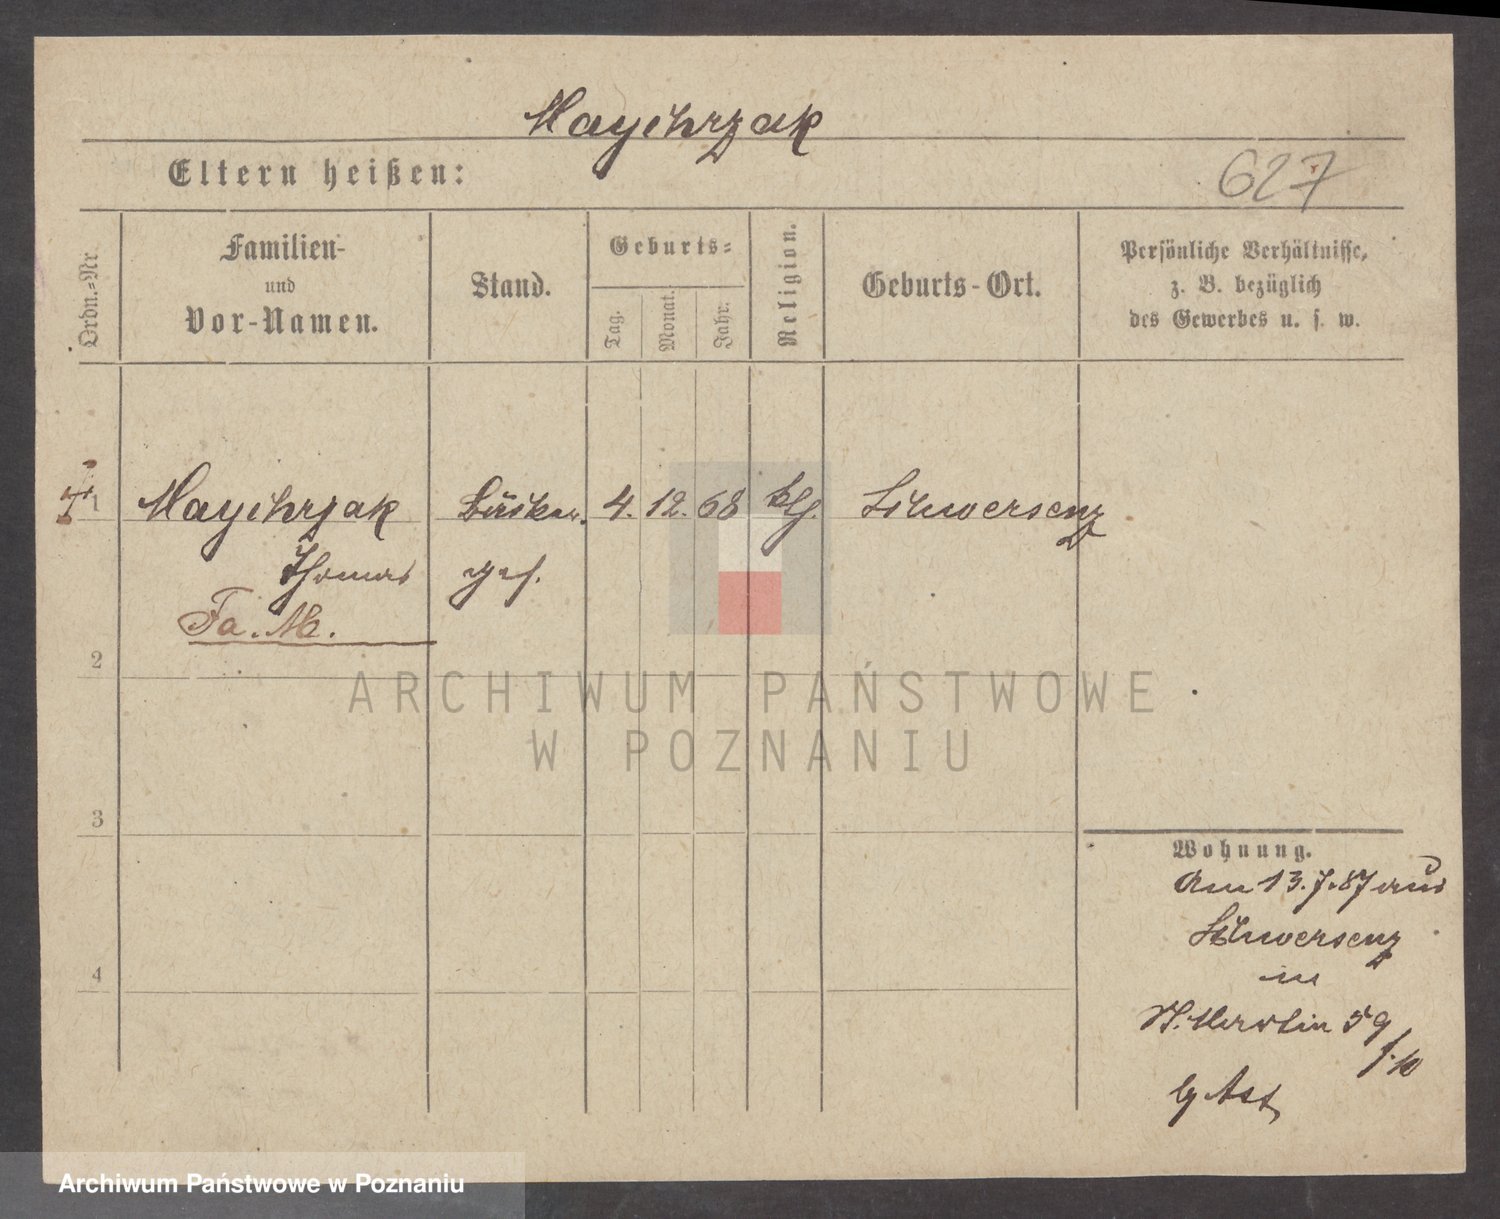 Maychrzak
Eltern heißen:
627
Ordn.=Nr.
Familien-
und
Vor-Namen.
Stand.
Geburts=
Tag.
Monat.
Jahr.
Religion.
Geburts-Ort.
Persönliche Verhältnisse,
z. B. bezüglich
des Gewerbes u. s. w.
1 Maychrzak 4. 12. 68 Schwersenz
Thomas
Fa. M.
2
3
4
Wohnung.
Am 13.7.87 aus
Schwersenz
in
St. Martin 59
ARCHIWUM PAŃSTWOWE
W POZNANIU
Archiwum Państwowe w Poznaniu